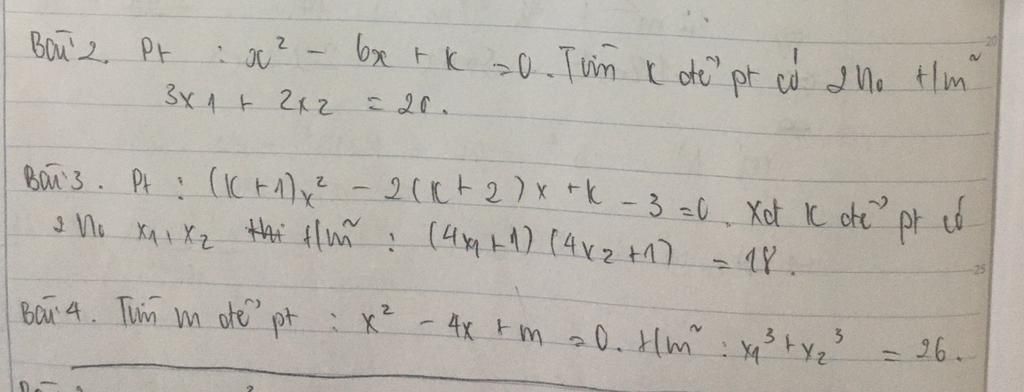 Bài 2. Pt : x² - 6x + k = 0. Tìm k để pt có 2 n₀ t/m
3x1 + 2x2 = 20.
Bài 3. Pt : (k+1)x² - 2(k+2)x + k - 3 = 0. Xđ k để pt có
2 n₀ x1, x2 t/m : (4x1+1)(4x2+1) = 18.
Bài 4. Tìm m để pt : x² - 4x + m = 0. t/m : x1³ + x2³ = 26.